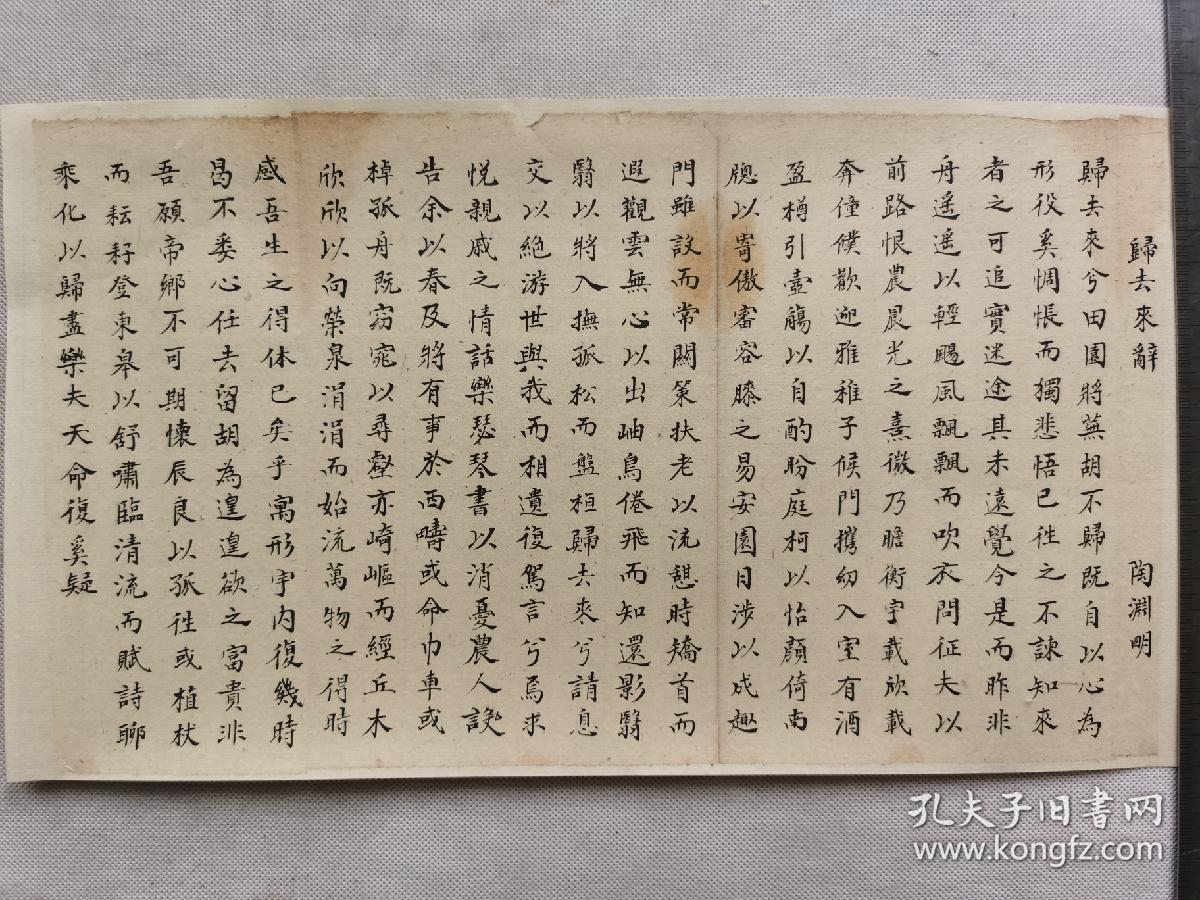 歸去來辭 陶淵明
歸去來兮田園將蕪胡不歸既自以心為
形役奚惆悵而獨悲悟已往之不諫知來
者之可追實迷途其未遠覺今是而昨非
舟遥遥以輕颺風飄飄而吹衣問征夫以
前路恨農晨光之熹微乃瞻衡宇載欣載
奔僮僕歡迎雅稚子候門攜幼入室有酒
盈樽引壺觴以自酌盼庭柯以怡顏倚南
牕以寄傲審容膝之易安園日涉以成趣
門雖設而常關策扶老以流憩時矯首而
遐觀雲無心以出岫鳥倦飛而知還影翳
翳以將入撫孤松而盤桓歸去來兮請息
交以絶游世與我而相遺復駕言兮焉求
悦親戚之情話樂瑟琴書以消憂農人
告余以春及將有事於西疇或命巾車或
棹孤舟既窈窕以尋壑亦崎嶇而經丘木
欣欣以向榮泉涓涓而始流萬物之得時
感吾生之得休已矣乎寓形宇内復幾時
曷不委心任去留胡為遑遑欲之富貴非
吾願帝鄉不可期懷辰良以孤往或植杖
而耘耔登東皋以舒嘯臨清流而賦詩聊
乘化以歸盡樂夫天命復奚疑
孔夫子旧书网
www.kongfz.com